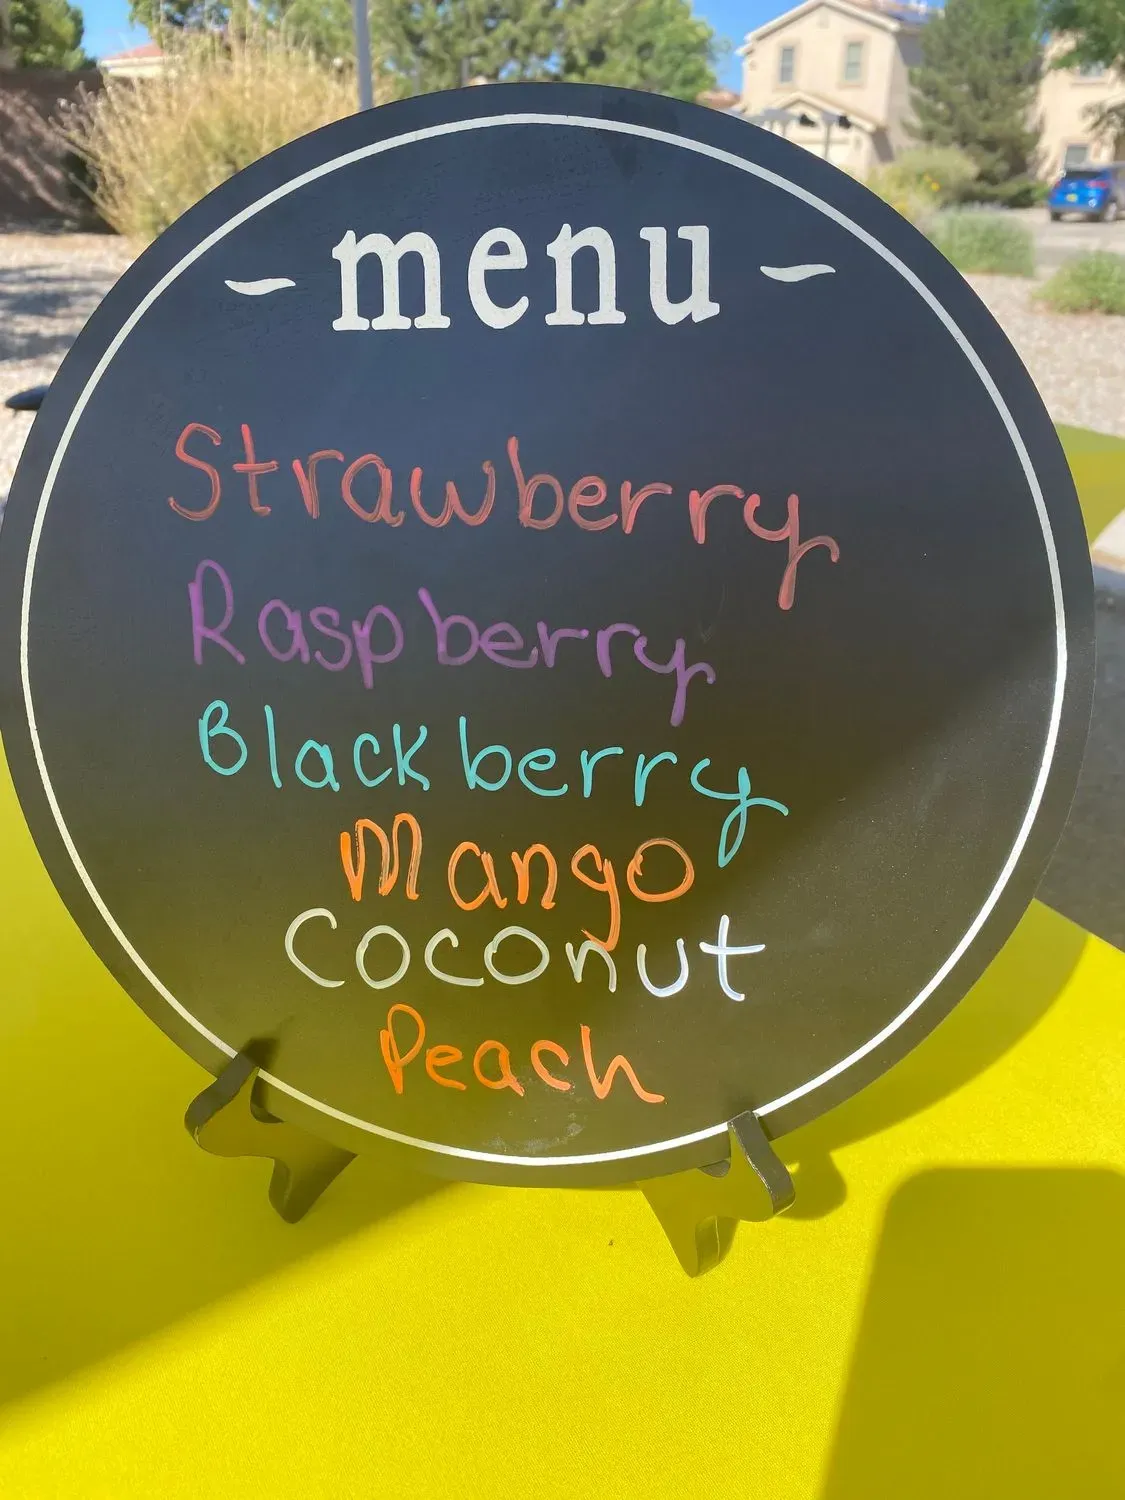 - menu -
Strawberry
Raspberry
Blackberry
Mango
Coconut
Peach